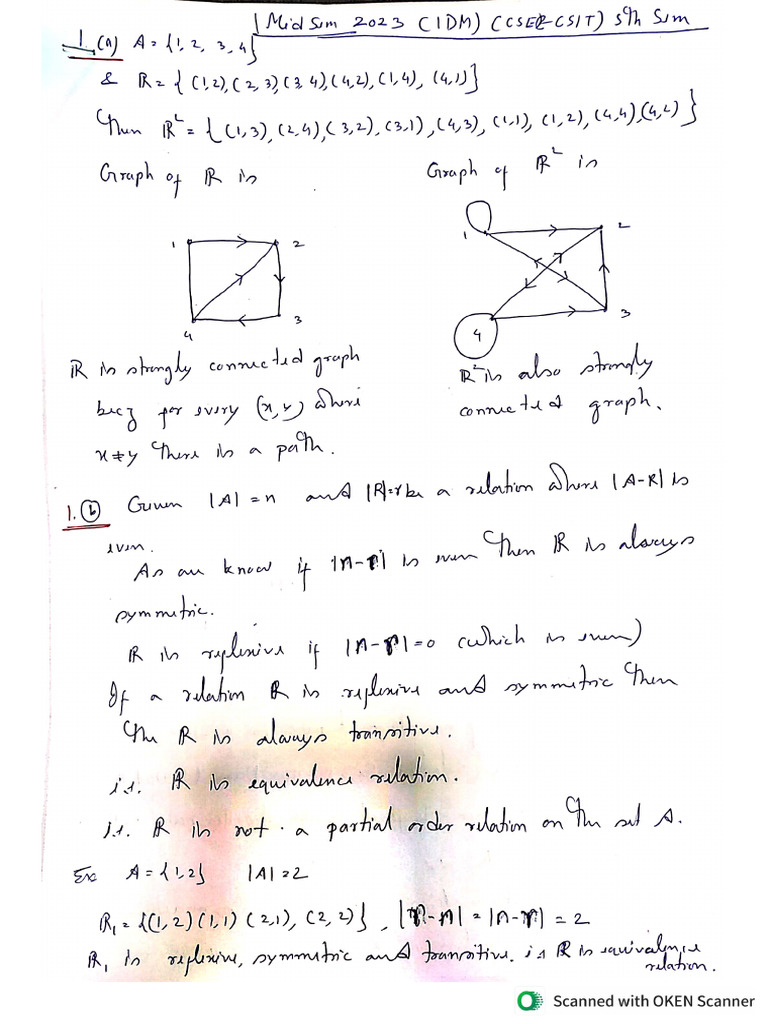 Mid Sem 2023 (IDM) (CSE&CSIT) 5th Sem
1. (a) A = {1, 2, 3, 4}
& R = { (1,2), (2,3) (3,4), (4,2), (1,4), (4,1)}
Then R² = { (1,3), (2,4), (3,2), (3,1), (4,3), (1,1), (1,2), (4,4), (4,2) }
Graph of R is
Graph of R² is
1
2
3
4
1
2
3
4
R is strongly connected graph
becz for every (x,y) where
x≠y there is a path.
R² is also strongly
connected graph.
1. (b) Given |A| = n and |R|=r be a relation where |A-R| is
even.
As we know if |n-r| is even then R is always
symmetric.
R is reflexive if |n-r|=0 (which is even)
If a relation R is reflexive and symmetric then
the R is always transitive.
i.e. R is equivalence relation.
i.e. R is not a partial order relation on the set A.
Ex A = {1,2} |A| = 2
R₁ = {(1,2) (1,1) (2,1), (2,2)}, |r-n| = |n-r| = 2
R₁ is reflexive, symmetric and transitive. i.e R is equivalence
relation.
Scanned with OKEN Scanner